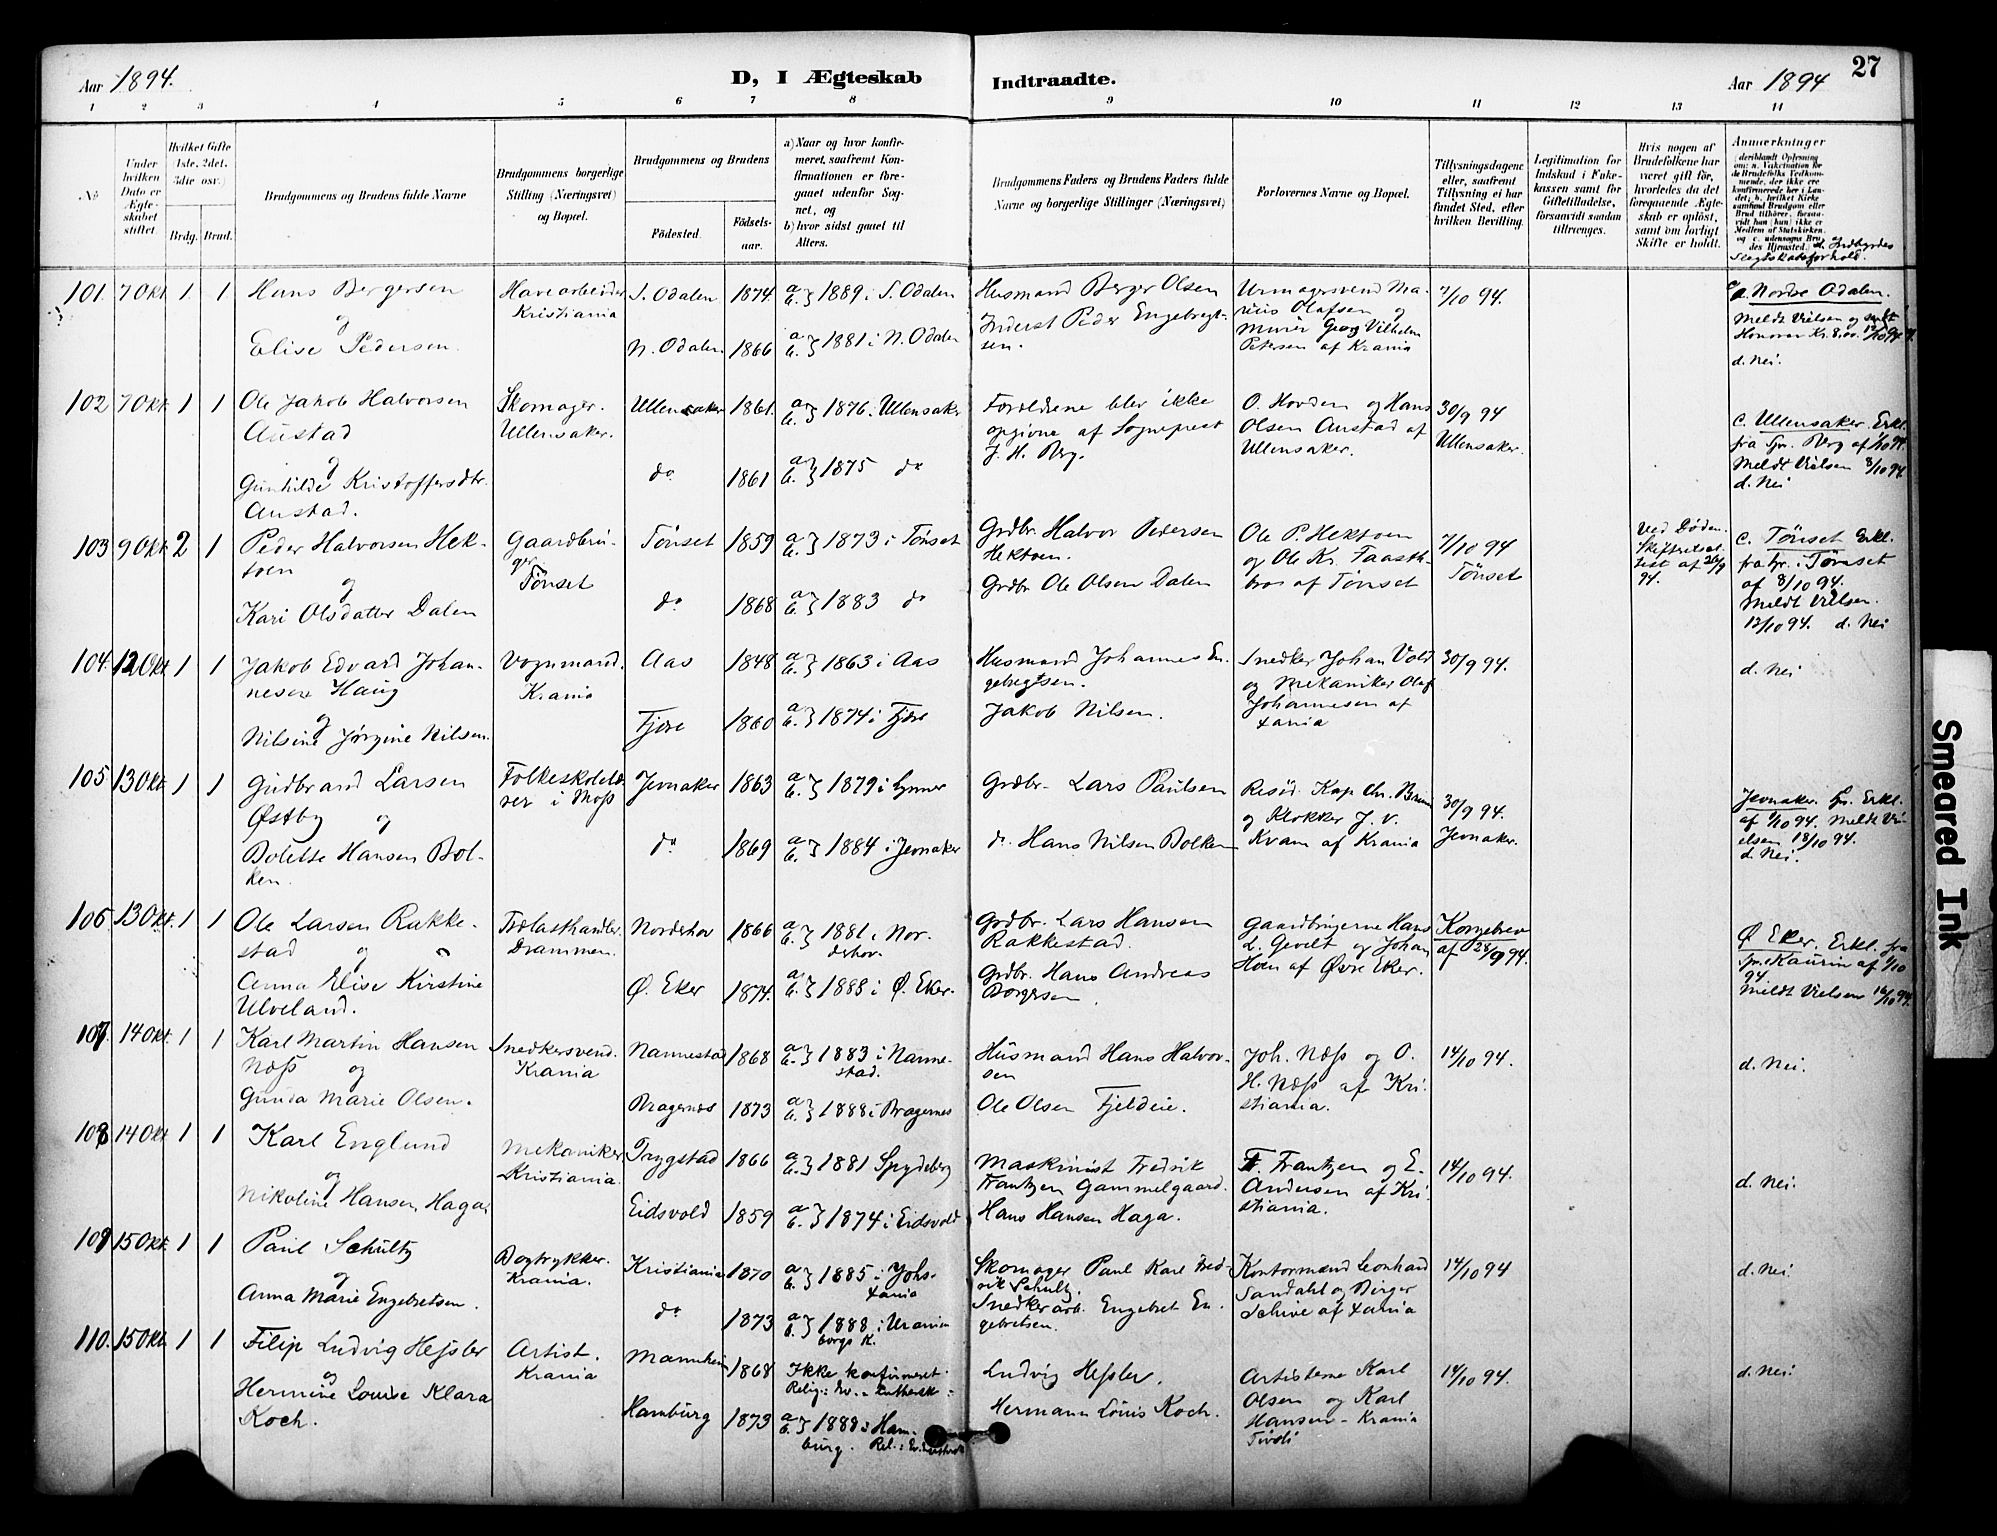 Aar 1894.
D, I Ægteskab Indtraadte.
Aar 1894
27
1 2 3 4 5 6 7 8 9 10 11 12 13 14
No
Under hvilken Dato er Ægteskabet stiftet
Hvilket Gifte (1ste, 2det, 3die osv.)
Brdg. Brud.
Brudgommens og Brudens fulde Navne
Brudgommens borgerlige Stilling (Næringsvei) og Bopæl.
Brudgommens og Brudens
Fødested.
Fødselsaar.
a) Naar og hvor konfirmeret, saafremt Konfirmationen er foregaaet udenfor Sognet, og
b) hvor sidst gaaet til Alters.
Brudgommens Faders og Brudens Faders fulde Navne og borgerlige Stillinger (Næringsvei)
Forlovernes Navne og Bopæl.
Tillysningsdagene eller, saafremt Tillysning ei har fundet Sted, efter hvilken Bevilling.
Legitimation for Indskud i Enkekassen samt for Giftetilladelse, forsaavidt saadan tiltrænges.
Hvis nogen af Brudefolkene har været gift før, hvorledes da det foregaaende Ægteskab er opløst, samt om lovligt Skifte er holdt.
Anmerkninger
101. 7 Okt. 1. 1
Hans Bergersen
og
Elise Pedersen.
Havearbeider
Kristiania
S. Odalen 1874 a b. } 1889 i S. Odalen
N. Odalen. 1866 a b. } 1881 i N. Odalen
Husmand Berger Olsen
Inderst Peder Engebregt-
sen.
Urmagersvend Ma-
rius Olafsen og
Murer Georg Vilhelm
Petersen af Krania
7/10 94.
c. Nordre Odalen.
Meldt Vielsen og sendt
Honorar Kr. 8.00. 12/10 94
d. Nei.
102 7 Okt. 1 1
Ole Jakob Halvorsen
Austad
og
Gunhilde Kristoffersdtr.
Austad.
Skomager.
Ullensaker.
Ullensaker 1861. a b. } 1876. Ullensaker
do 1861 a b. } 1875 do
Forældrene blev ikke
opgivne af Sogneprest
J. H. Berg.
O. Hovden og Hans
Olsen Austad af
Ullensaker.
30/9 94
Ullensaker.
c. Ullensaker. Erkl.
fra Spr. Berg af 1/10 94.
Meldt Vielsen 8/10 94.
d. Nei
103 9 Okt. 2 1
Peder Halvorsen Hek-
toen
og
Kari Olsdatter Dalen
Gaardbru-
ger
Tönset
Tönset 1859 a b. } 1873 i Tönset
do 1868 a b. } 1883 do
Grdbr. Halvor Pedersen
Hektoen.
Grdbr. Ole Olsen Dalen
Ole P. Hektoen
og Ole Kr. Taasth-
bros af Tönset
7/10 94
Tönset
Ved Døden.
Skifteretsat-
test af 26/9
94.
c. Tönset Erkl.
fra Spr. i Tönset
af 8/10 94.
Meldt Vielsen.
12/10 94. d. Nei
104. 12 Okt. 1 1
Jakob Edvard Johan-
nesen Haug
og
Nilsine Jørgine Nilsen.
Vognmand.
Krania
Aas 1848 a b. } 1863 i Aas
Fjære 1860 a b. } 1874 i Fjære
Husmand Johannes En-
gebregtsen.
Jakob Nilsen.
Snedker Johan Vold
og Mekaniker Olaf
Johannesen af
Xania
30/9 94.
d. Nei
105 13 Okt. 1 1
Gudbrand Larsen
Østby og
Bolette Hansen Bol-
ken.
Folkeskolelæ-
rer i Moss
Jevnaker 1863 a b. } 1879 i Lynner
do 1869 a b. } 1884 i Jevnaker
Grdbr. Lars Paulsen
do. Hans Nilsen Bolken
Resid. Kap. Chr. Bruun
og Klokker J. V.
Kvam af Krania
30/9 94.
Jevnaker.
Jevnaker. Spr. Erkl.
af 1/10 94. Meldt Vi-
elsen 18/10 94.
d. Nei.
106 13 Okt. 1 1
Ole Larsen Rakke-
stad og
Anna Elise Kirstine
Ulveland.
Trælasthandler.
Drammen.
Norderhov 1866 a b. } 1881 i Nor-
derhov.
Ø. Eker 1874. a b. } 1888 i Ø. Eker.
Grdbr. Lars Hansen
Rakkestad.
Grdbr. Hans Andreas
Borgersen
Gaardbrugerne Hans
L. Gevelt og Johan
Hoen af Øvre Eker.
Kongebrev
af 28/9 94.
Ø. Eker. Erkl. fra
Spr. Kaurin af 1/10
94
Meldt Vielsen 16/10 94.
107. 14 Okt. 1 1
Karl Martin Hansen
Næss og
Gunda Marie Olsen.
Snedkersvend.
Krania
Nannestad 1868 a b. } 1883 i Nanne-
stad.
Bragernæs 1873 a b. } 1888 i Bragernes
Husmand Hans Halvor-
sen
Ole Olsen Fjeldeie.
Joh. Næss og O.
H. Næss af Kri-
stiania.
14/10 94.
d. Nei.
108 14 Okt 1 1
Karl Englund
og
Nikoline Hansen Haga.
Mekaniker
Kristiania.
Trygstad 1866 a b. } 1881 Spydeberg
Eidsvold 1859 a b. } 1874 i Eidsvold
Maskinist Fredrik
Frantzen Gammelgaard.
Hans Hansen Haga.
F. Frantzen og E.
Andersen af Kri-
stiania.
14/10 94.
d. Nei.
109 15 Okt. 1 1
Paul Schultz
og
Anna Marie Engebretsen.
Bogtrykker.
Krania.
Kristiania 1870 a b. } 1885 i Johs.
Xania
do 1873 a b. } 1888 i Uranien
borgs K.
Skomager Paul Karl Fred-
rik Schultz.
Snedkerarb. Engebret En-
gebretsen.
Kontormænd Leonhard
Sandahl og Birger
Schive af Xania
14/10 94
d. Nei.
110. 15 Okt. 1 1
Filip Ludvig Hessler
og
Hermine Louise Klara
Koch.
Artist.
Krania
Mannheim 1868 Ikke konfirmeret.
Relig: Ev. Luthersk.
Hamburg 1873 a b. } 1888 i Ham-
burg. Rel.: Ev. Luthersk
Ludvig Hessler.
Hermann Louis Koch.
Artisterne Karl
Olsen og Karl
Hansen - Krania
Tivoli
14/10 94.
d. Nei.
Smeared Ink